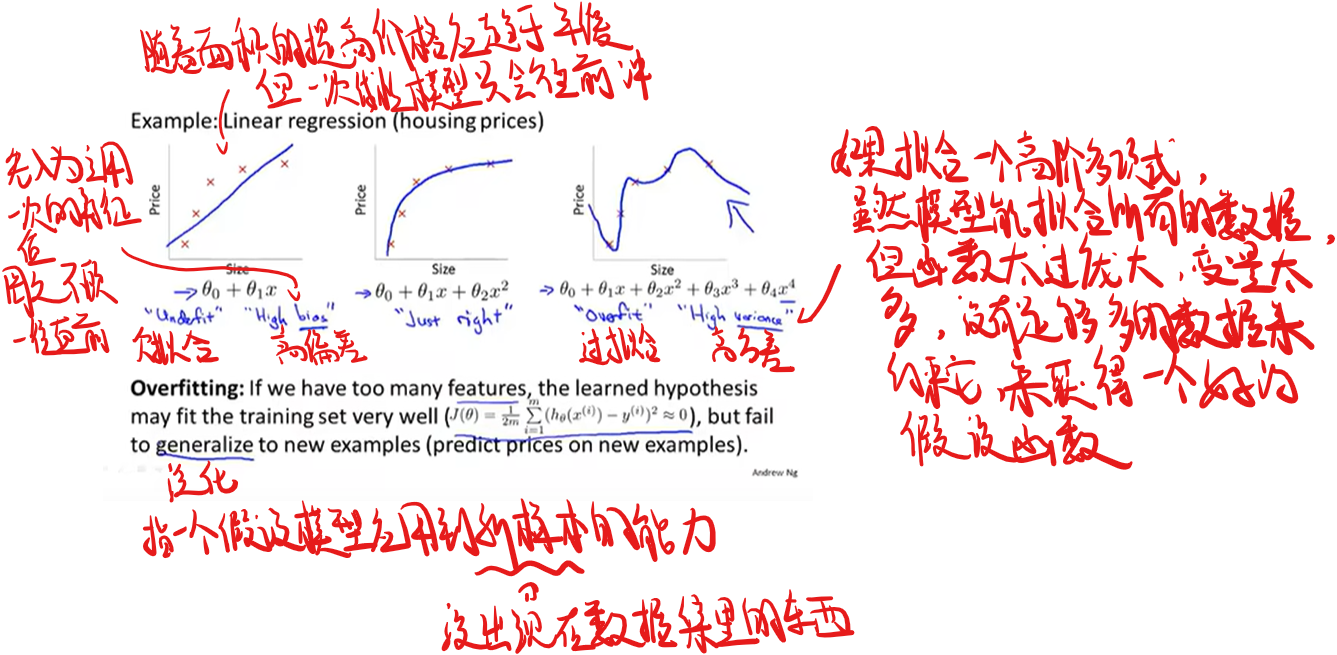 随着面积的提高价格应趋于平缓
但一次线性模型只会往前冲
Example: Linear regression (housing prices)
先入为主用
一次的特征
值
固定不顾
一往直前
Price
Size
→ θ₀ + θ₁x
"Underfit" "High bias"
欠拟合 高偏差
Price
Size
→ θ₀ + θ₁x + θ₂x²
"Just right"
Price
Size
→ θ₀ + θ₁x + θ₂x² + θ₃x³ + θ₄x⁴
"Overfit" "High variance"
过拟合 高方差
如果拟合一个高阶多项式，
虽然模型能拟合所有的数据，
但函数太过庞大，变量太
多，没有足够多的数据来
约束它，来获得一个好的
假设函数
Overfitting: If we have too many features, the learned hypothesis
may fit the training set very well (J(θ) = 1/2m ∑ᵢ₌₁ᵐ (hθ(x⁽ⁱ⁾) − y⁽ⁱ⁾)² ≈ 0), but fail
to generalize to new examples (predict prices on new examples).
Andrew Ng
泛化
指一个假设模型应用到新样本的能力
没出现在数据集里的东西